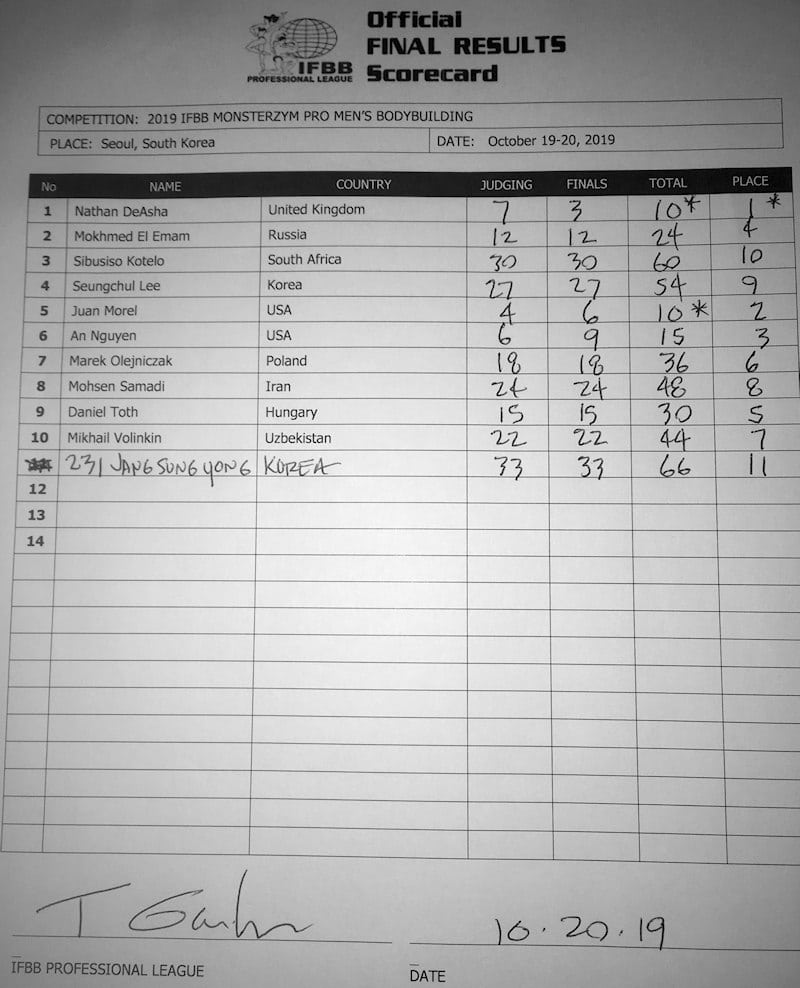 Official
FINAL RESULTS
Scorecard
IFBB
PROFESSIONAL LEAGUE
COMPETITION: 2019 IFBB MONSTERZYM PRO MEN'S BODYBUILDING
PLACE: Seoul, South Korea DATE: October 19-20, 2019
No NAME COUNTRY JUDGING FINALS TOTAL PLACE
1 Nathan DeAsha United Kingdom 7 3 10* 1*
2 Mokhmed El Emam Russia 12 12 24 4
3 Sibusiso Kotelo South Africa 30 30 60 10
4 Seungchul Lee Korea 27 27 54 9
5 Juan Morel USA 4 6 10* 2
6 An Nguyen USA 6 9 15 3
7 Marek Olejniczak Poland 18 18 36 6
8 Mohsen Samadi Iran 24 24 48 8
9 Daniel Toth Hungary 15 15 30 5
10 Mikhail Volinkin Uzbekistan 22 22 44 7
231 JANGSUNGYONG KOREA 33 33 66 11
12
13
14
10.20.19
IFBB PROFESSIONAL LEAGUE DATE